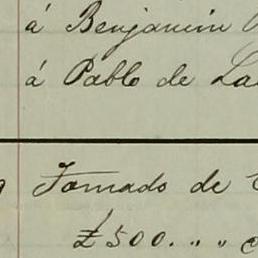 á Benjamin
á Pablo de
Tomado de
£500. " "